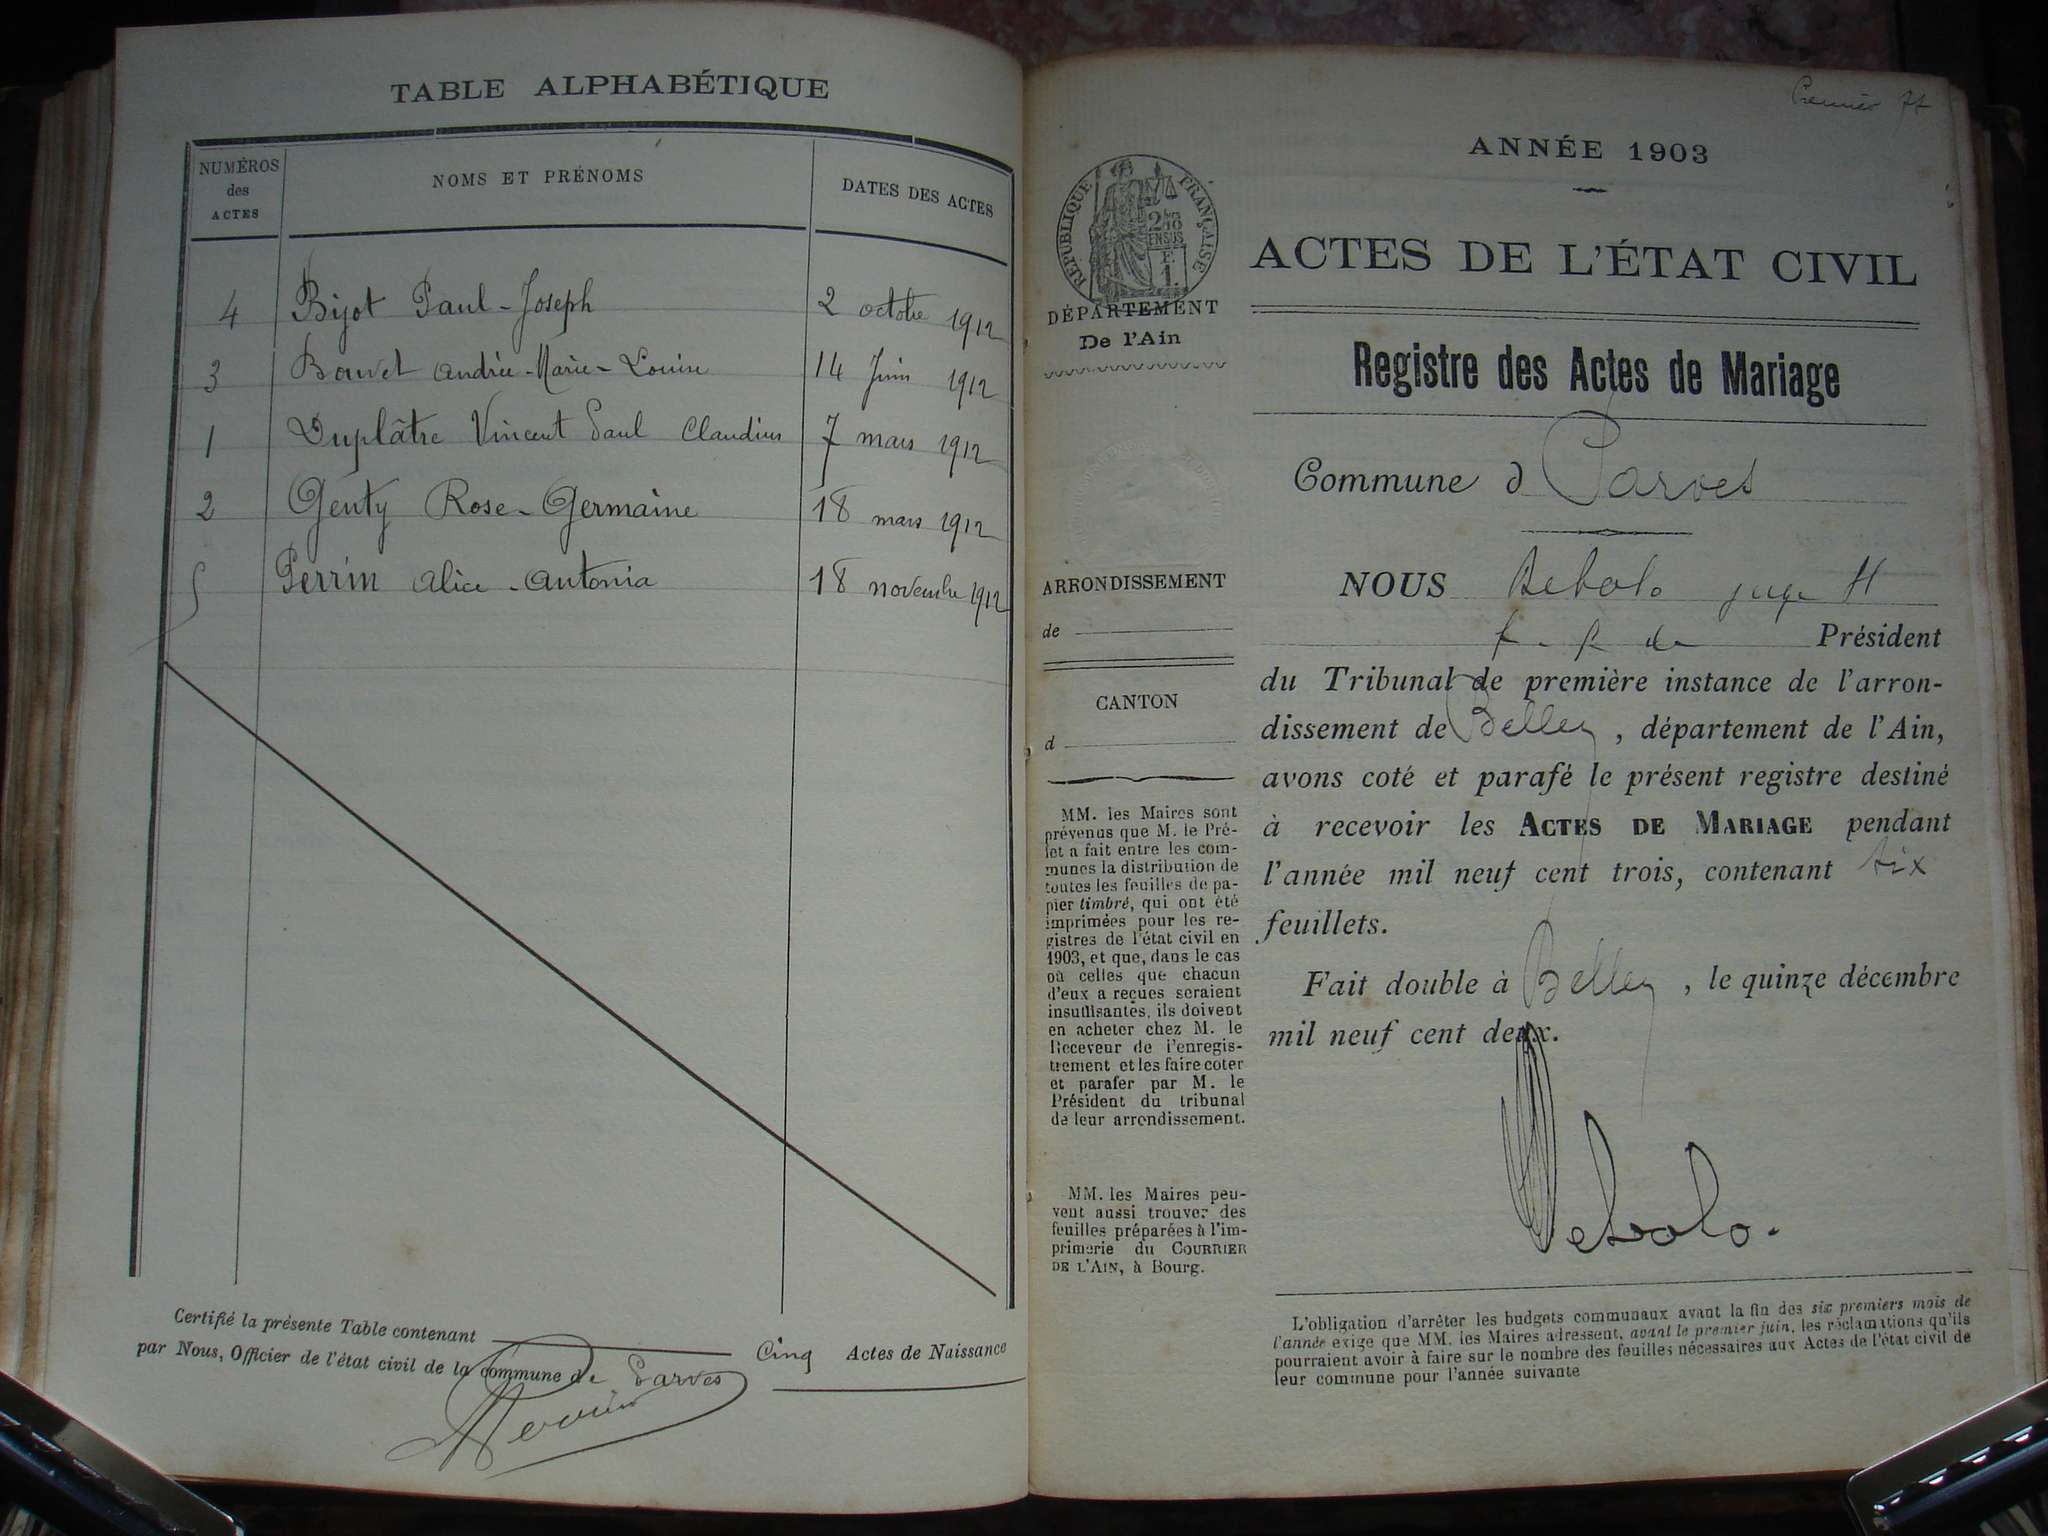 TABLE ALPHABÉTIQUE
NUMÉROS
des
ACTES
NOMS ET PRÉNOMS
DATES DES ACTES
4 Bijot Paul-Joseph 2 octobre 1912
3 Bouvet Andrée-Marie-Louise 14 Juin 1912
1 Duplâtre Vincent Paul Claudius 7 mars 1912
2 Genty Rose-Germaine 18 mars 1912
5 Perrin Alice-Antonia 18 novembre 1912
Certifié la présente Table contenant Cinq Actes de Naissance
par Nous, Officier de l'état civil de la commune de Parves
Premier
ANNÉE 1903
RÉPUBLIQUE FRANÇAISE
ACTES DE L'ÉTAT CIVIL
DÉPARTEMENT
De l'Ain
Registre des Actes de Mariage
Commune d Parves
ARRONDISSEMENT
de
CANTON
d
MM. les Maires sont
prévenus que M. le Pré-
fet a fait entre les com-
munes la distribution de
toutes les feuilles de pa-
pier timbré, qui ont été
imprimées pour les re-
gistres de l'état civil en
1903, et que, dans le cas
où celles que chacun
d'eux a reçues seraient
insuffisantes, ils doivent
en acheter chez M. le
Receveur de l'enregis-
trement et les faire coter
et parafer par M. le
Président du tribunal
de leur arrondissement.
MM. les Maires peu-
vent aussi trouver des
feuilles préparées à l'im-
primerie du COURRIER
DE L'AIN, à Bourg.
NOUS Rebolo juge
Président
du Tribunal de première instance de l'arron-
dissement de Belley, département de l'Ain,
avons coté et parafé le présent registre destiné
à recevoir les ACTES DE MARIAGE pendant
l'année mil neuf cent trois, contenant six
feuillets.
Fait double à Belley, le quinze décembre
mil neuf cent deux.
Rebolo.
L'obligation d'arrêter les budgets communaux avant la fin des six premiers mois de
l'année exige que MM. les Maires adressent, avant le premier juin, les réclamations qu'ils
pourraient avoir à faire sur le nombre des feuilles nécessaires aux Actes de l'état civil de
leur commune pour l'année suivante